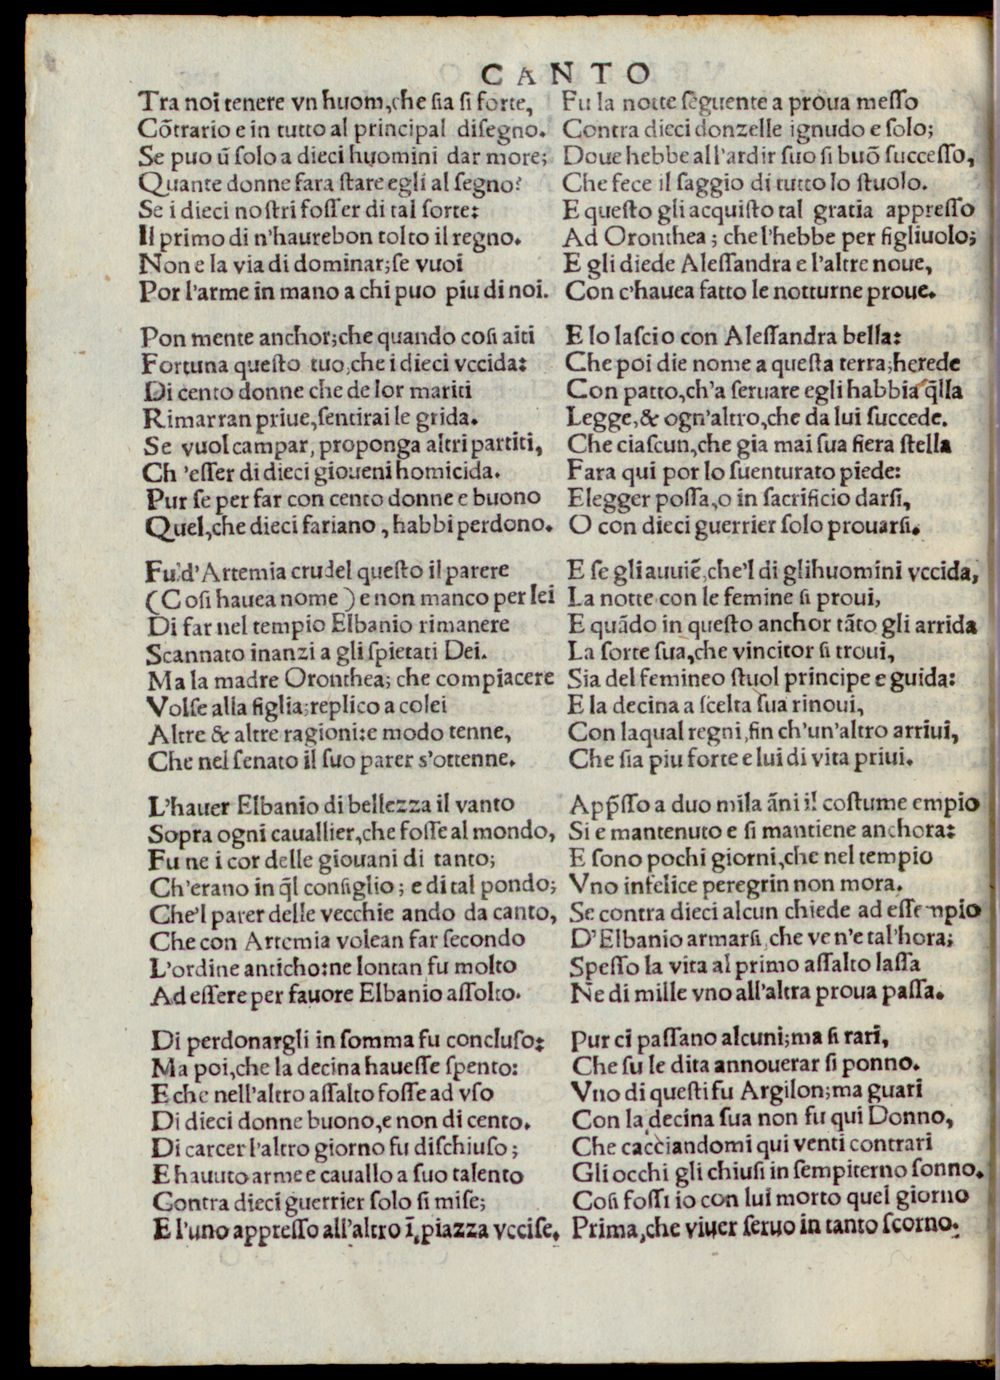 CANTO
Tra noi tenere vn huom, che sia si forte,
Cōtrario e in tutto al principal disegno.
Se puo ū solo a dieci huomini dar more;
Quante donne fara stare egli al segno?
Se i dieci nostri fosser di tal sorte:
Il primo di n'haurebon tolto il regno.
Non e la via di dominar; se vuoi
Por l'arme in mano a chi puo piu di noi.
Pon mente anchor; che quando cosi aiti
Fortuna questo tuo, che i dieci vccida:
Di cento donne che de lor mariti
Rimarran priue, sentirai le grida.
Se vuol campar, proponga altri partiti,
Ch'esser di dieci gioueni homicida.
Pur se per far con cento donne e buono
Quel, che dieci fariano, habbi perdono.
Fu d'Artemia crudel questo il parere
(Cosi hauea nome) e non manco per lei
Di far nel tempio Elbanio rimanere
Scannato inanzi a gli spietati Dei.
Ma la madre Oronthea; che compiacere
Volse alla figlia; replico a colei
Altre & altre ragioni: e modo tenne,
Che nel senato il suo parer s'ottenne.
L'hauer Elbanio di bellezza il vanto
Sopra ogni cauallier, che fosse al mondo,
Fu ne i cor delle giouani di tanto;
Ch'erano in q̄l consiglio; e di tal pondo;
Che'l parer delle vecchie ando da canto,
Che con Artemia volean far secondo
L'ordine anticho: ne lontan fu molto
Ad essere per fauore Elbanio assolto.
Di perdonargli in somma fu concluso:
Ma poi, che la decina hauesse spento:
E che nell'altro assalto fosse ad vso
Di dieci donne buono, e non di cento.
Di carcer l'altro giorno fu dischiuso;
E hauuto arme e cauallo a suo talento
Contra dieci guerrier solo si mise;
E l'uno appresso all'altro ī piazza vccise.
Fu la notte seguente a proua messo
Contra dieci donzelle ignudo e solo;
Doue hebbe all'ardir suo si buō successo,
Che fece il saggio di tutto lo stuolo.
E questo gli acquisto tal gratia appresso
Ad Oronthea; che l'hebbe per figliuolo;
E gli diede Alessandra e l'altre noue,
Con c'hauea fatto le notturne proue.
E lo lascio con Alessandra bella:
Che poi die nome a questa terra; herede
Con patto, ch'a seruare egli habbia q̄lla
Legge, & ogn'altro, che da lui succede.
Che ciascun, che gia mai sua fiera stella
Fara qui por lo suenturato piede:
Elegger possa, o in sacrificio darsi,
O con dieci guerrier solo prouarsi.
E se gli auuiē, che'l di gli huomini vccida,
La notte con le femine si proui,
E quādo in questo anchor tāto gli arrida
La sorte sua, che vincitor si troui,
Sia del femineo stuol principe e guida:
E la decina a scelta sua rinoui,
Con laqual regni, fin ch'un'altro arriui,
Che sia piu forte e lui di vita priui.
App̄sso a duo mila āni il costume empio
Si e mantenuto e si mantiene anchora:
E sono pochi giorni, che nel tempio
Vno infelice peregrin non mora.
Se contra dieci alcun chiede ad essempio
D'Elbanio armarsi, che ve n'e tal'hora;
Spesso la vita al primo assalto lassa
Ne di mille vno all'altra proua passa.
Pur ci passano alcuni; ma si rari,
Che su le dita annouerar si ponno.
Vno di questi fu Argilon; ma guari
Con la decina sua non fu qui Donno,
Che cacciandomi qui venti contrari
Gli occhi gli chiusi in sempiterno sonno.
Cosi fossi io con lui morto quel giorno
Prima, che viuer seruo in tanto scorno.